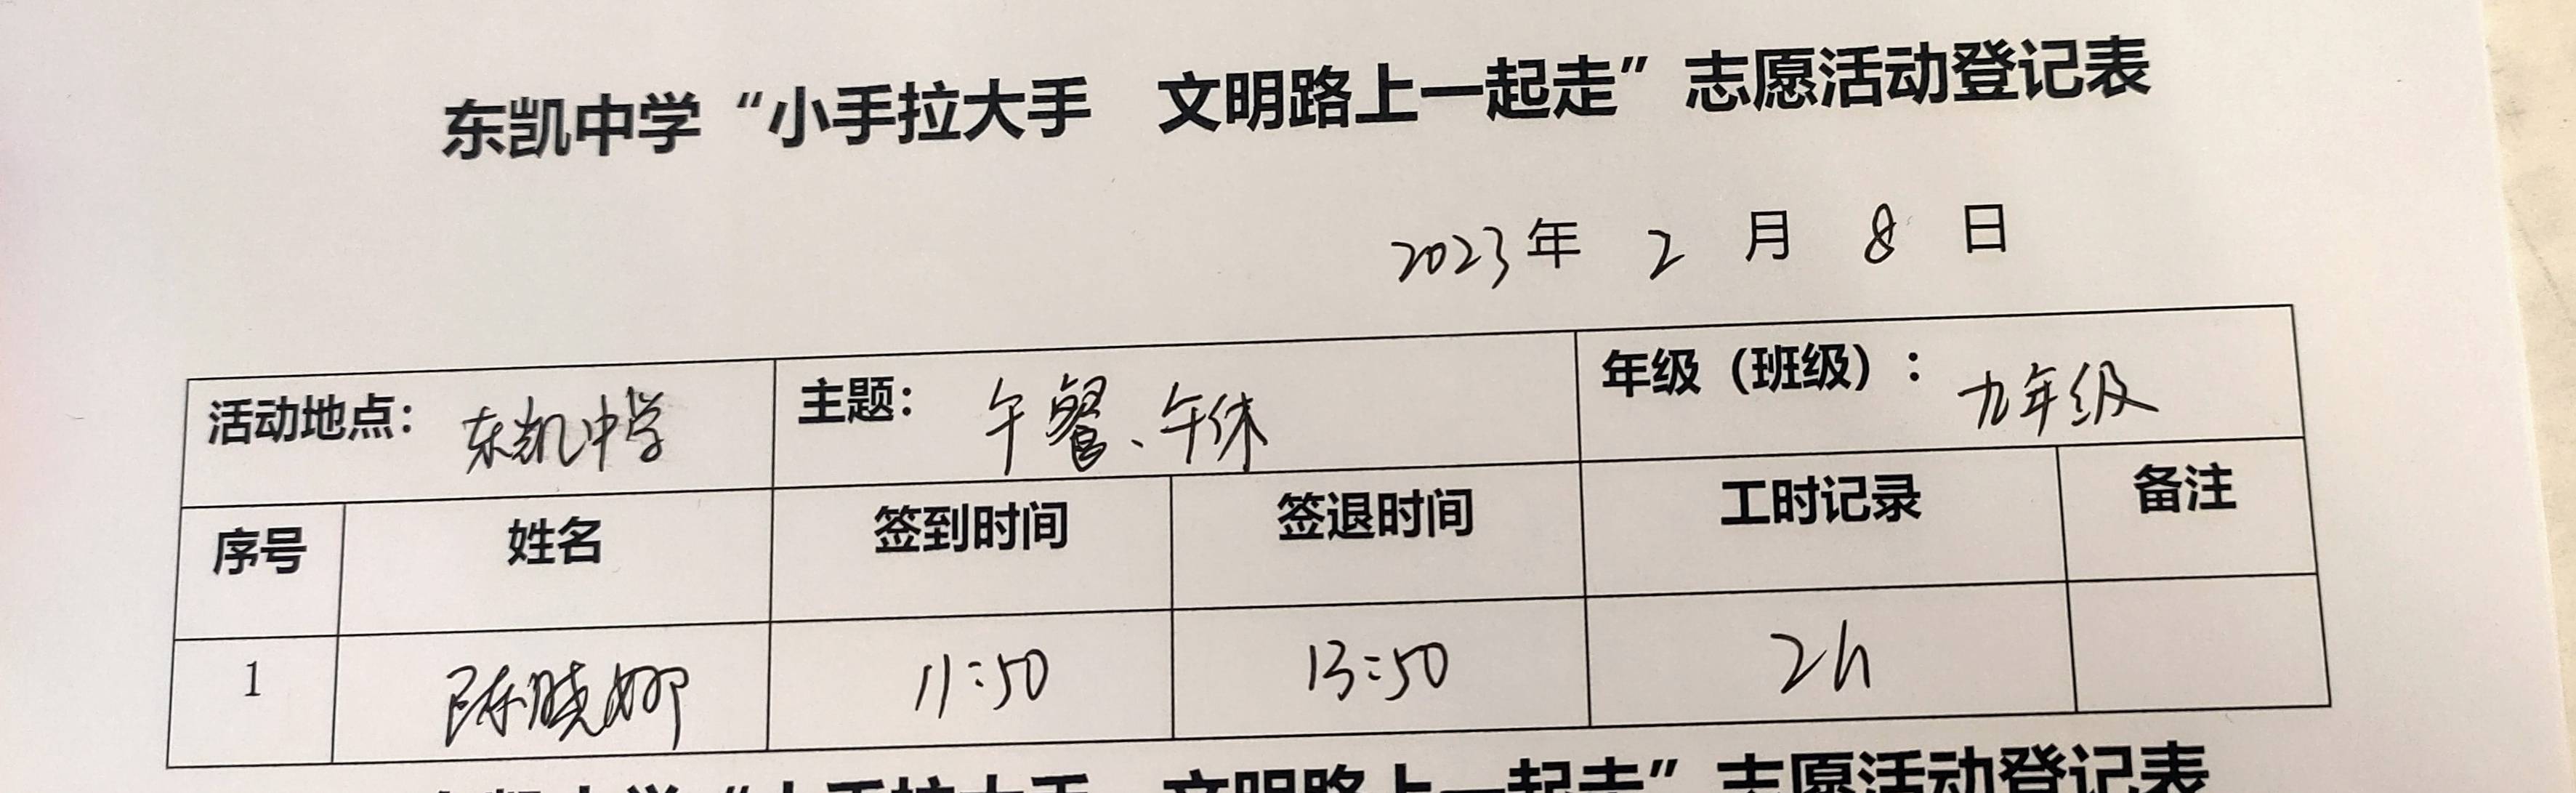 东凯中学“小手拉大手 文明路上一起走”志愿活动登记表
2023年 2 月 8 日
活动地点：东凯中学 主题：午餐、午休 年级（班级）：九年级
序号 姓名 签到时间 签退时间 工时记录 备注
1 陈晓娜 11:50 13:50 2h
东凯中学“小手拉大手 文明路上一起走”志愿活动登记表